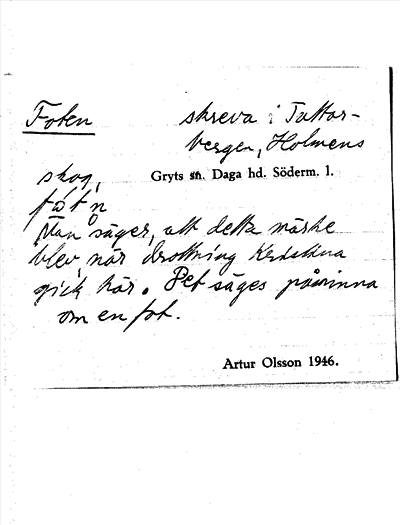 Foten
skreva i Tattar-
bergen, Holmens
skog,
Gryts sn. Daga hd. Söderm. l.
fót n
Man säger, att detta märke
blev, när drottning Kristina
gick här. Det säges påminna
om en fot.
Artur Olsson 1946.